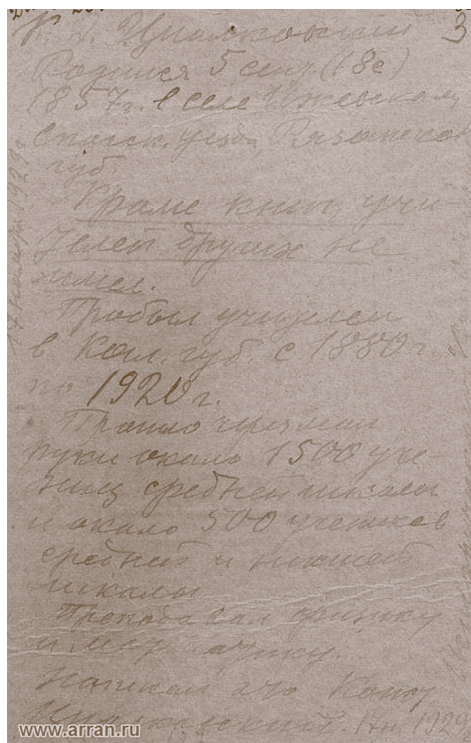 3
К. Э. Циолковский
Родился 5 сент. (18е)
1857 г. в селе Ижевском,
Спасск. уезда, Рязанской
губ.
Кроме книг, учи-
телей других не
имел.
Пробыл учителем
в Кал. губ. с 1880 г.
по 1920 г.
Прошло через мои
руки около 1500 уче-
ниц средней школы
и около 500 учеников
средней и низшей
школы
Преподавал физику
и математику.
Написал
Циолковский. 1929
www.arran.ru